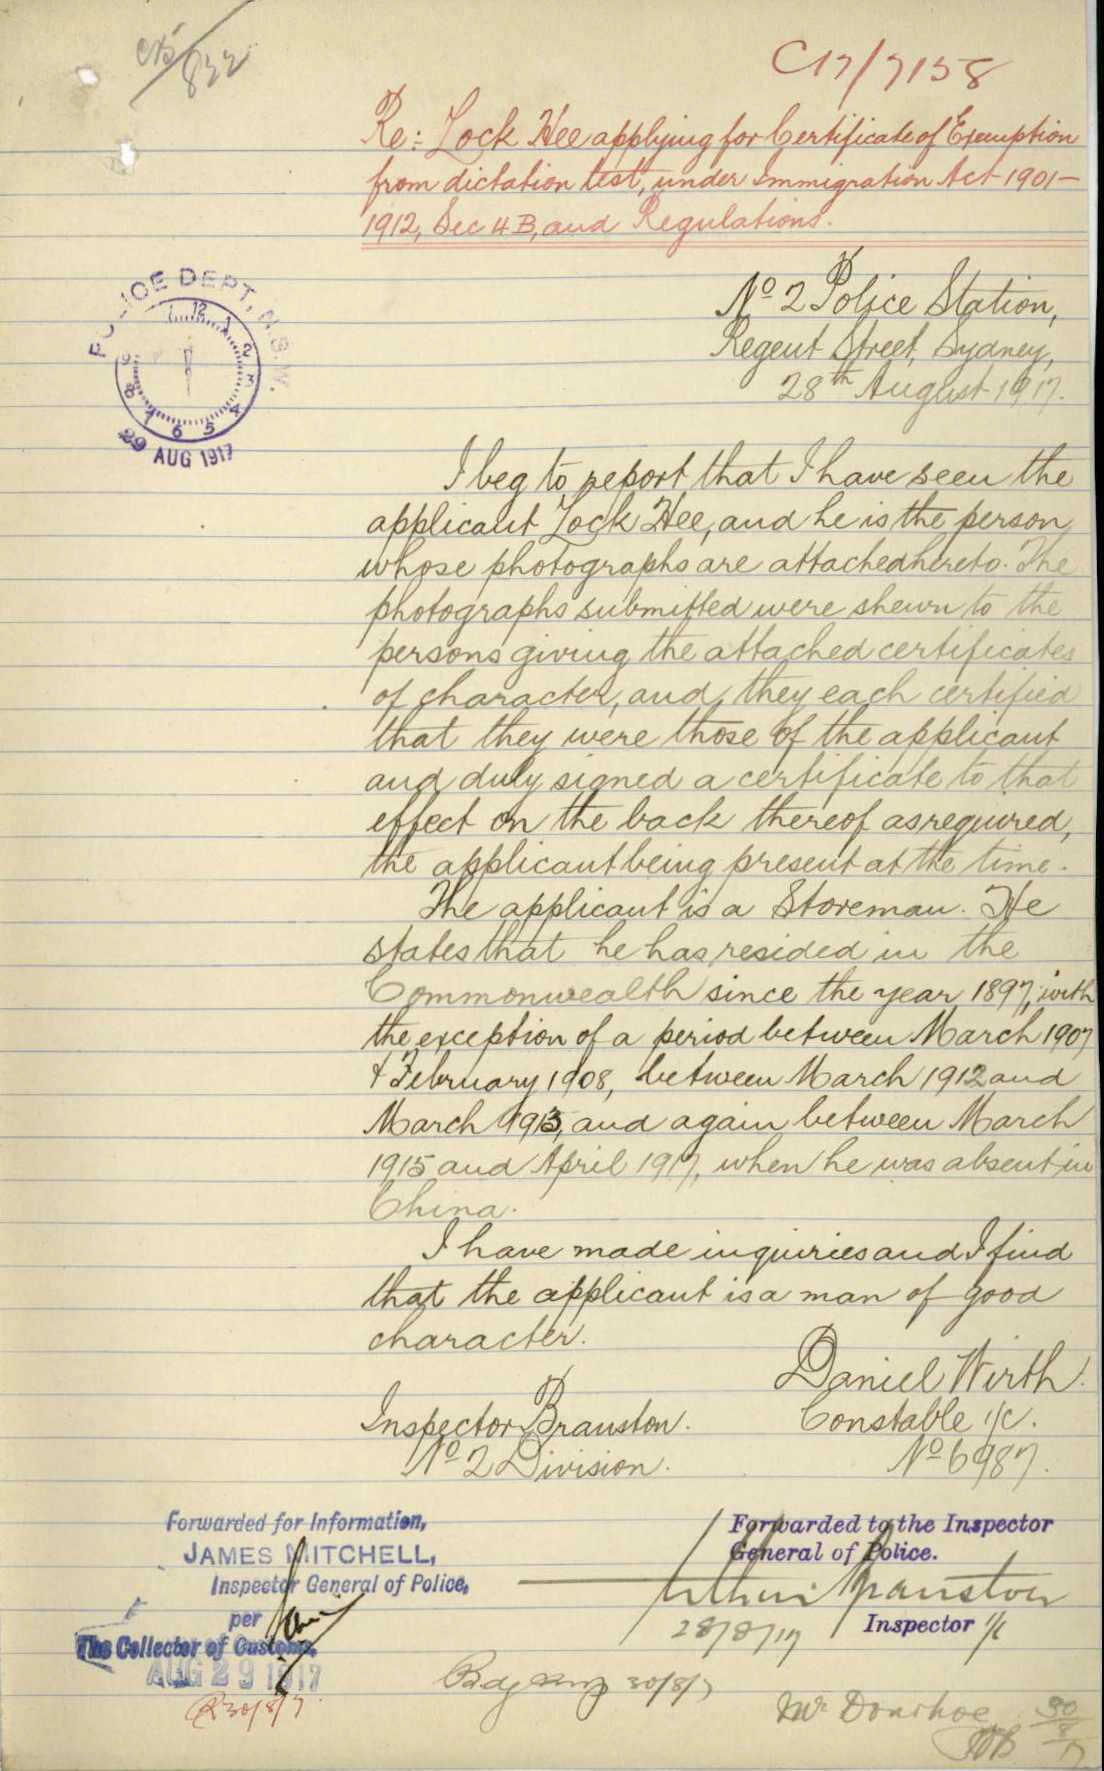 C17/7158
Re:- Lock Hee applying for Certificate of Exemption
from dictation test, under Immigration Act 1901-
1912, Sec 4B, and Regulations.
No 2 Police Station,
Regent Street, Sydney,
28th August 1917.
POLICE DEPT, N.S.W.
12 1 2 3 4 5 6 7 8 9
29 AUG 1917
I beg to report that I have seen the
applicant Lock Hee, and he is the person
whose photographs are attached hereto. The
photographs submitted were shewn to the
persons giving the attached certificates
of character, and they each certified
that they were those of the applicant
and duly signed a certificate to that
effect on the back thereof as required,
the applicant being present at the time.
The applicant is a Storeman. He
states that he has resided in the
Commonwealth since the year 1897, with
the exception of a period between March 1907
& February 1908, between March 1912 and
March 1913, and again between March
1915 and April 1917, when he was absent in
China.
I have made inquiries and I find
that the applicant is a man of good
character.
Daniel Wirth.
Constable 1/c.
No 6987.
Inspector Branston.
No 2 Division.
Forwarded for Information,
JAMES MITCHELL,
Inspector General of Police,
per
The Collector of Customs.
AUG 29 1917
30/8/7.
Forwarded to the Inspector
General of Police.
Arthur Branston
28/8/17 Inspector 1/c
30/8/7
Mr Donohoe
30/8/17